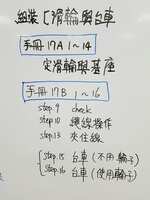 組裝［滑輪與台車
手冊17A 1~14
定滑輪與基座
手冊17B 1~16
step.9 check
step.10 纏線操作
step.13 夾住線
step.15 台車（不用輪子）
step.16 台車（使用輪子）